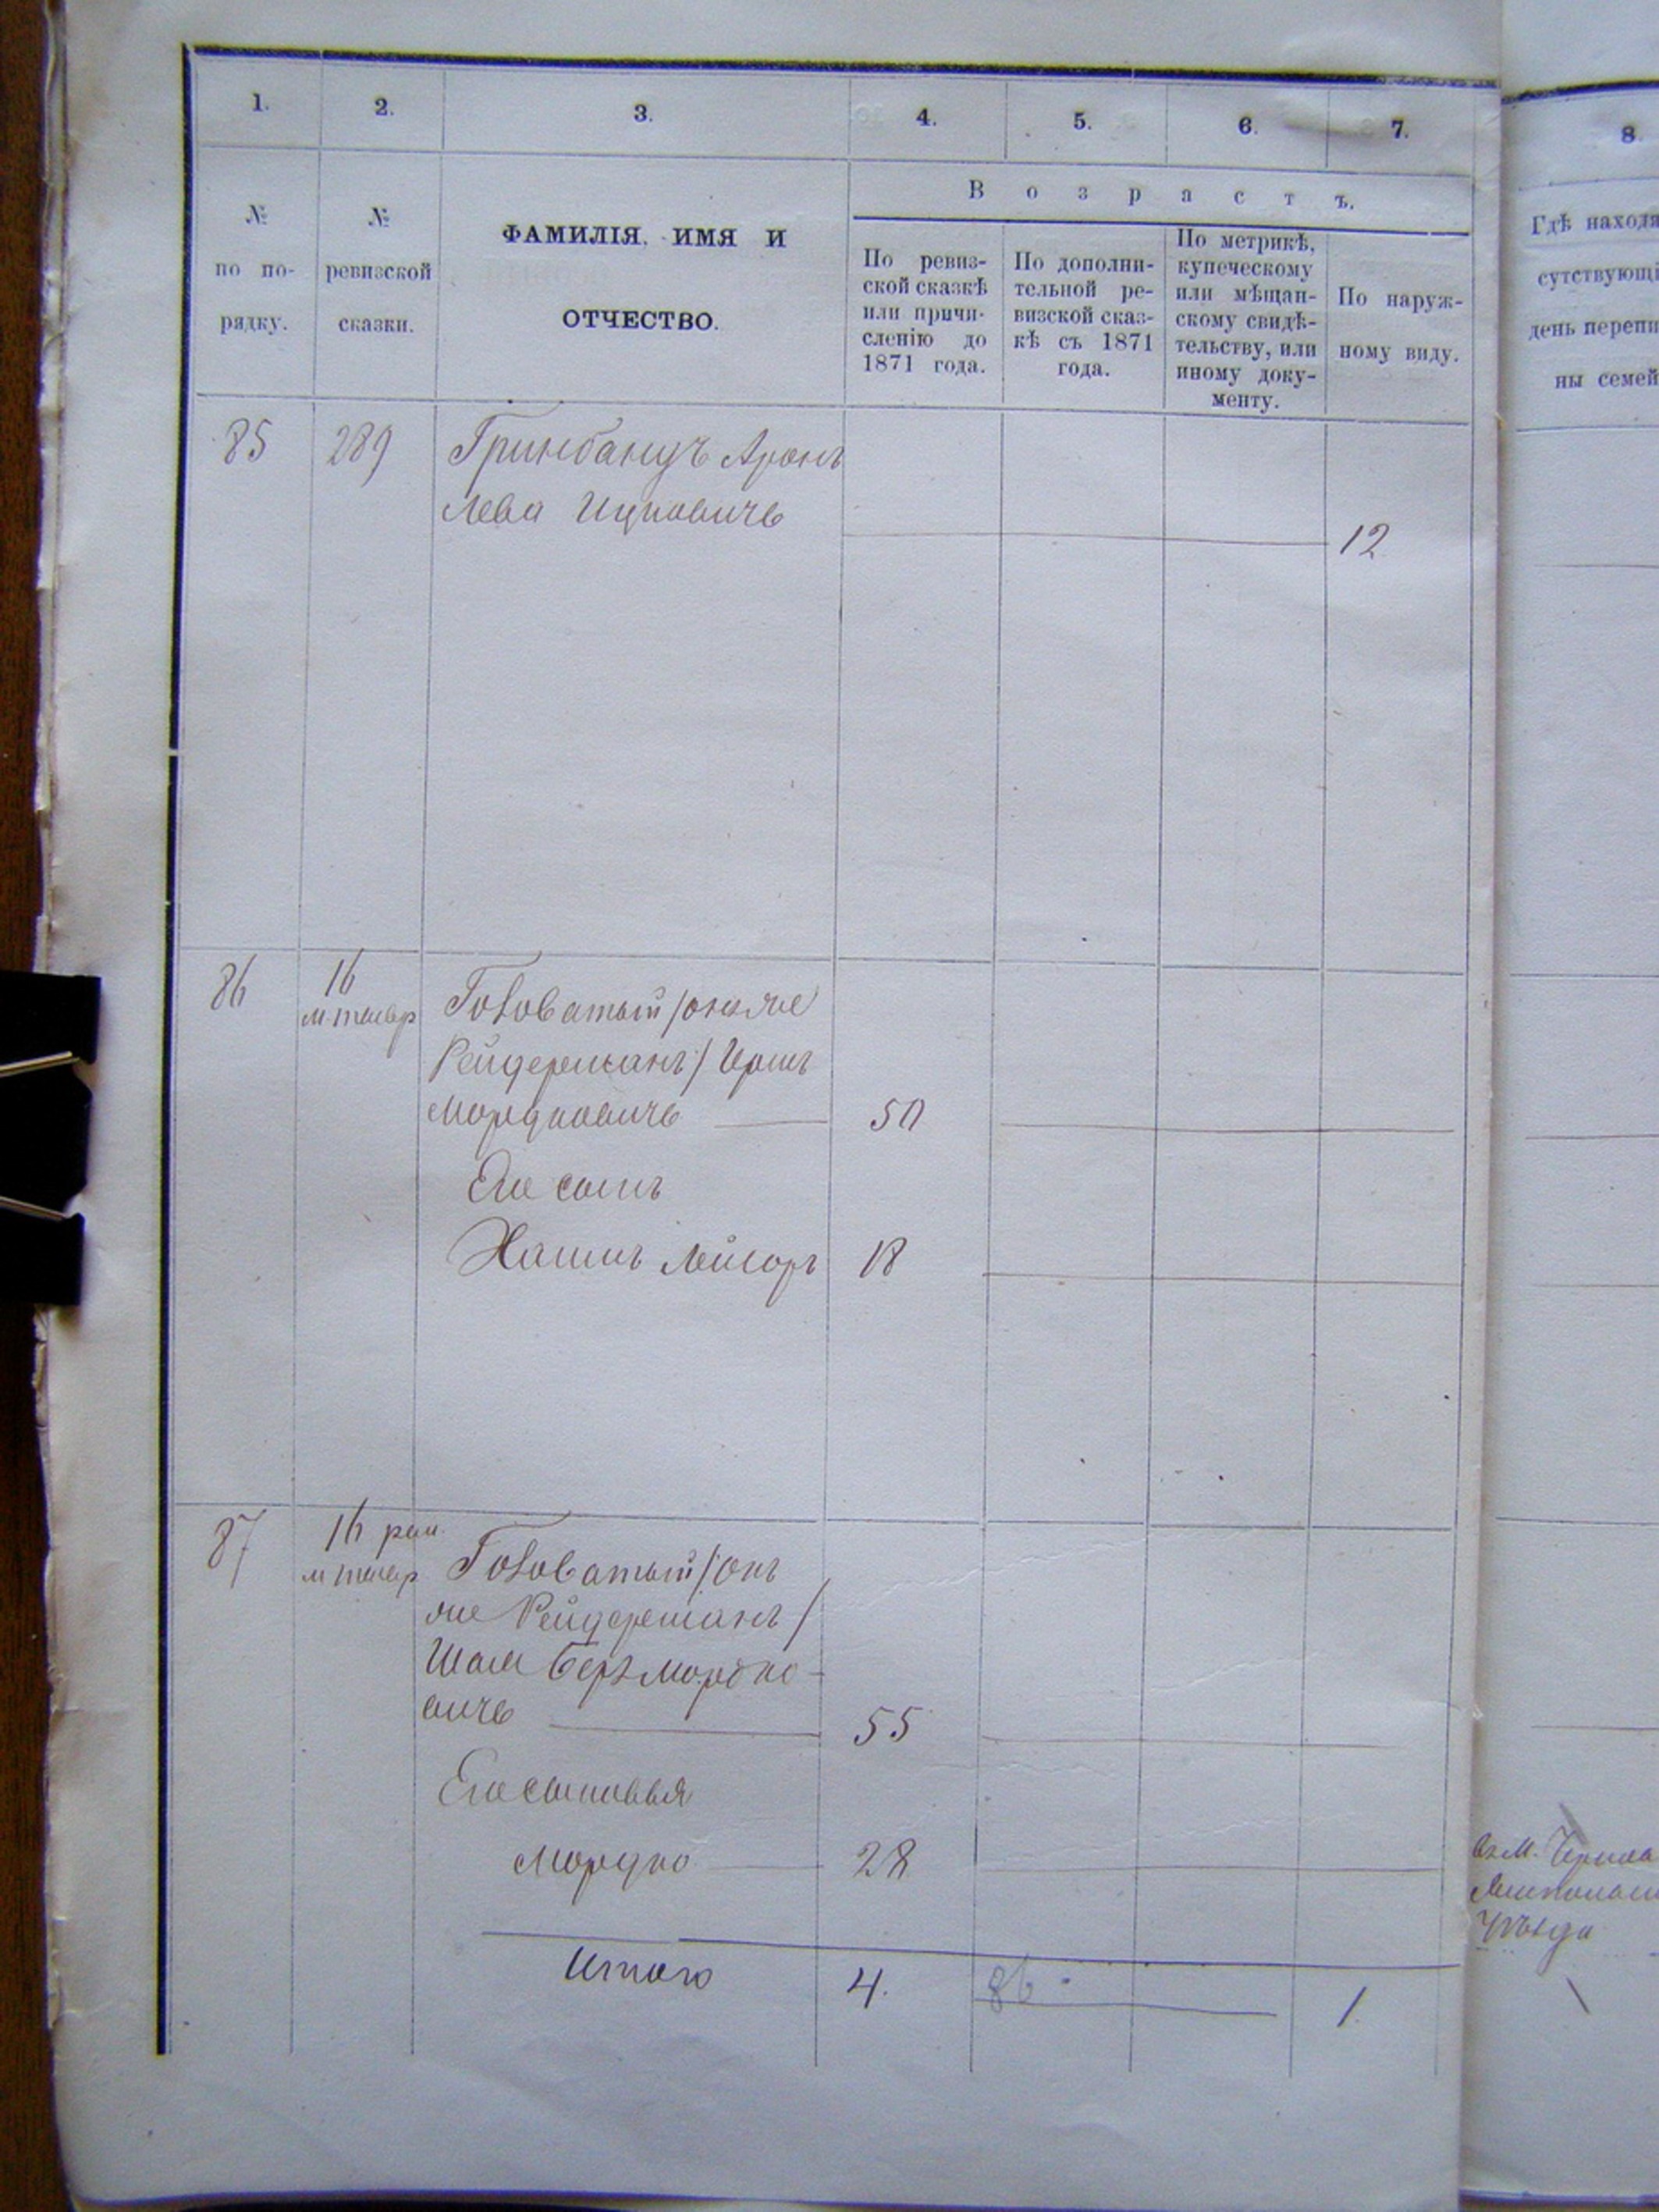 1. 2. 3. 4. 5. 6. 7. 8.
В о з р а с т ъ.
№ по по-рядку.
№ ревизской сказки.
ФАМИЛІЯ, ИМЯ И
ОТЧЕСТВО.
По ревиз-
ской сказкѣ
или причи-
сленію до
1871 года.
По дополни-
тельной ре-
визской сказ-
кѣ съ 1871
года.
По метрикѣ,
купеческому
или мѣщан-
скому свидѣ-
тельству, или
иному доку-
менту.
По наруж-
ному виду.
Гдѣ находя
сутствующі
день перепи
ны семей
85 289 Гринбандъ Аронъ
Лева Ицковичъ
12
86 16 Головатый /онъ же
Рейдерманъ/
Мордковичъ 50
Его сынъ
Хаимъ Лейзоръ 18
87 16 Головатый /онъ
же Рейдерманъ/
Беръ Мордко-
вичъ 55
Его сыновья
Мордко 28
Итого 4. 86 1
въ М.
Уѣзда